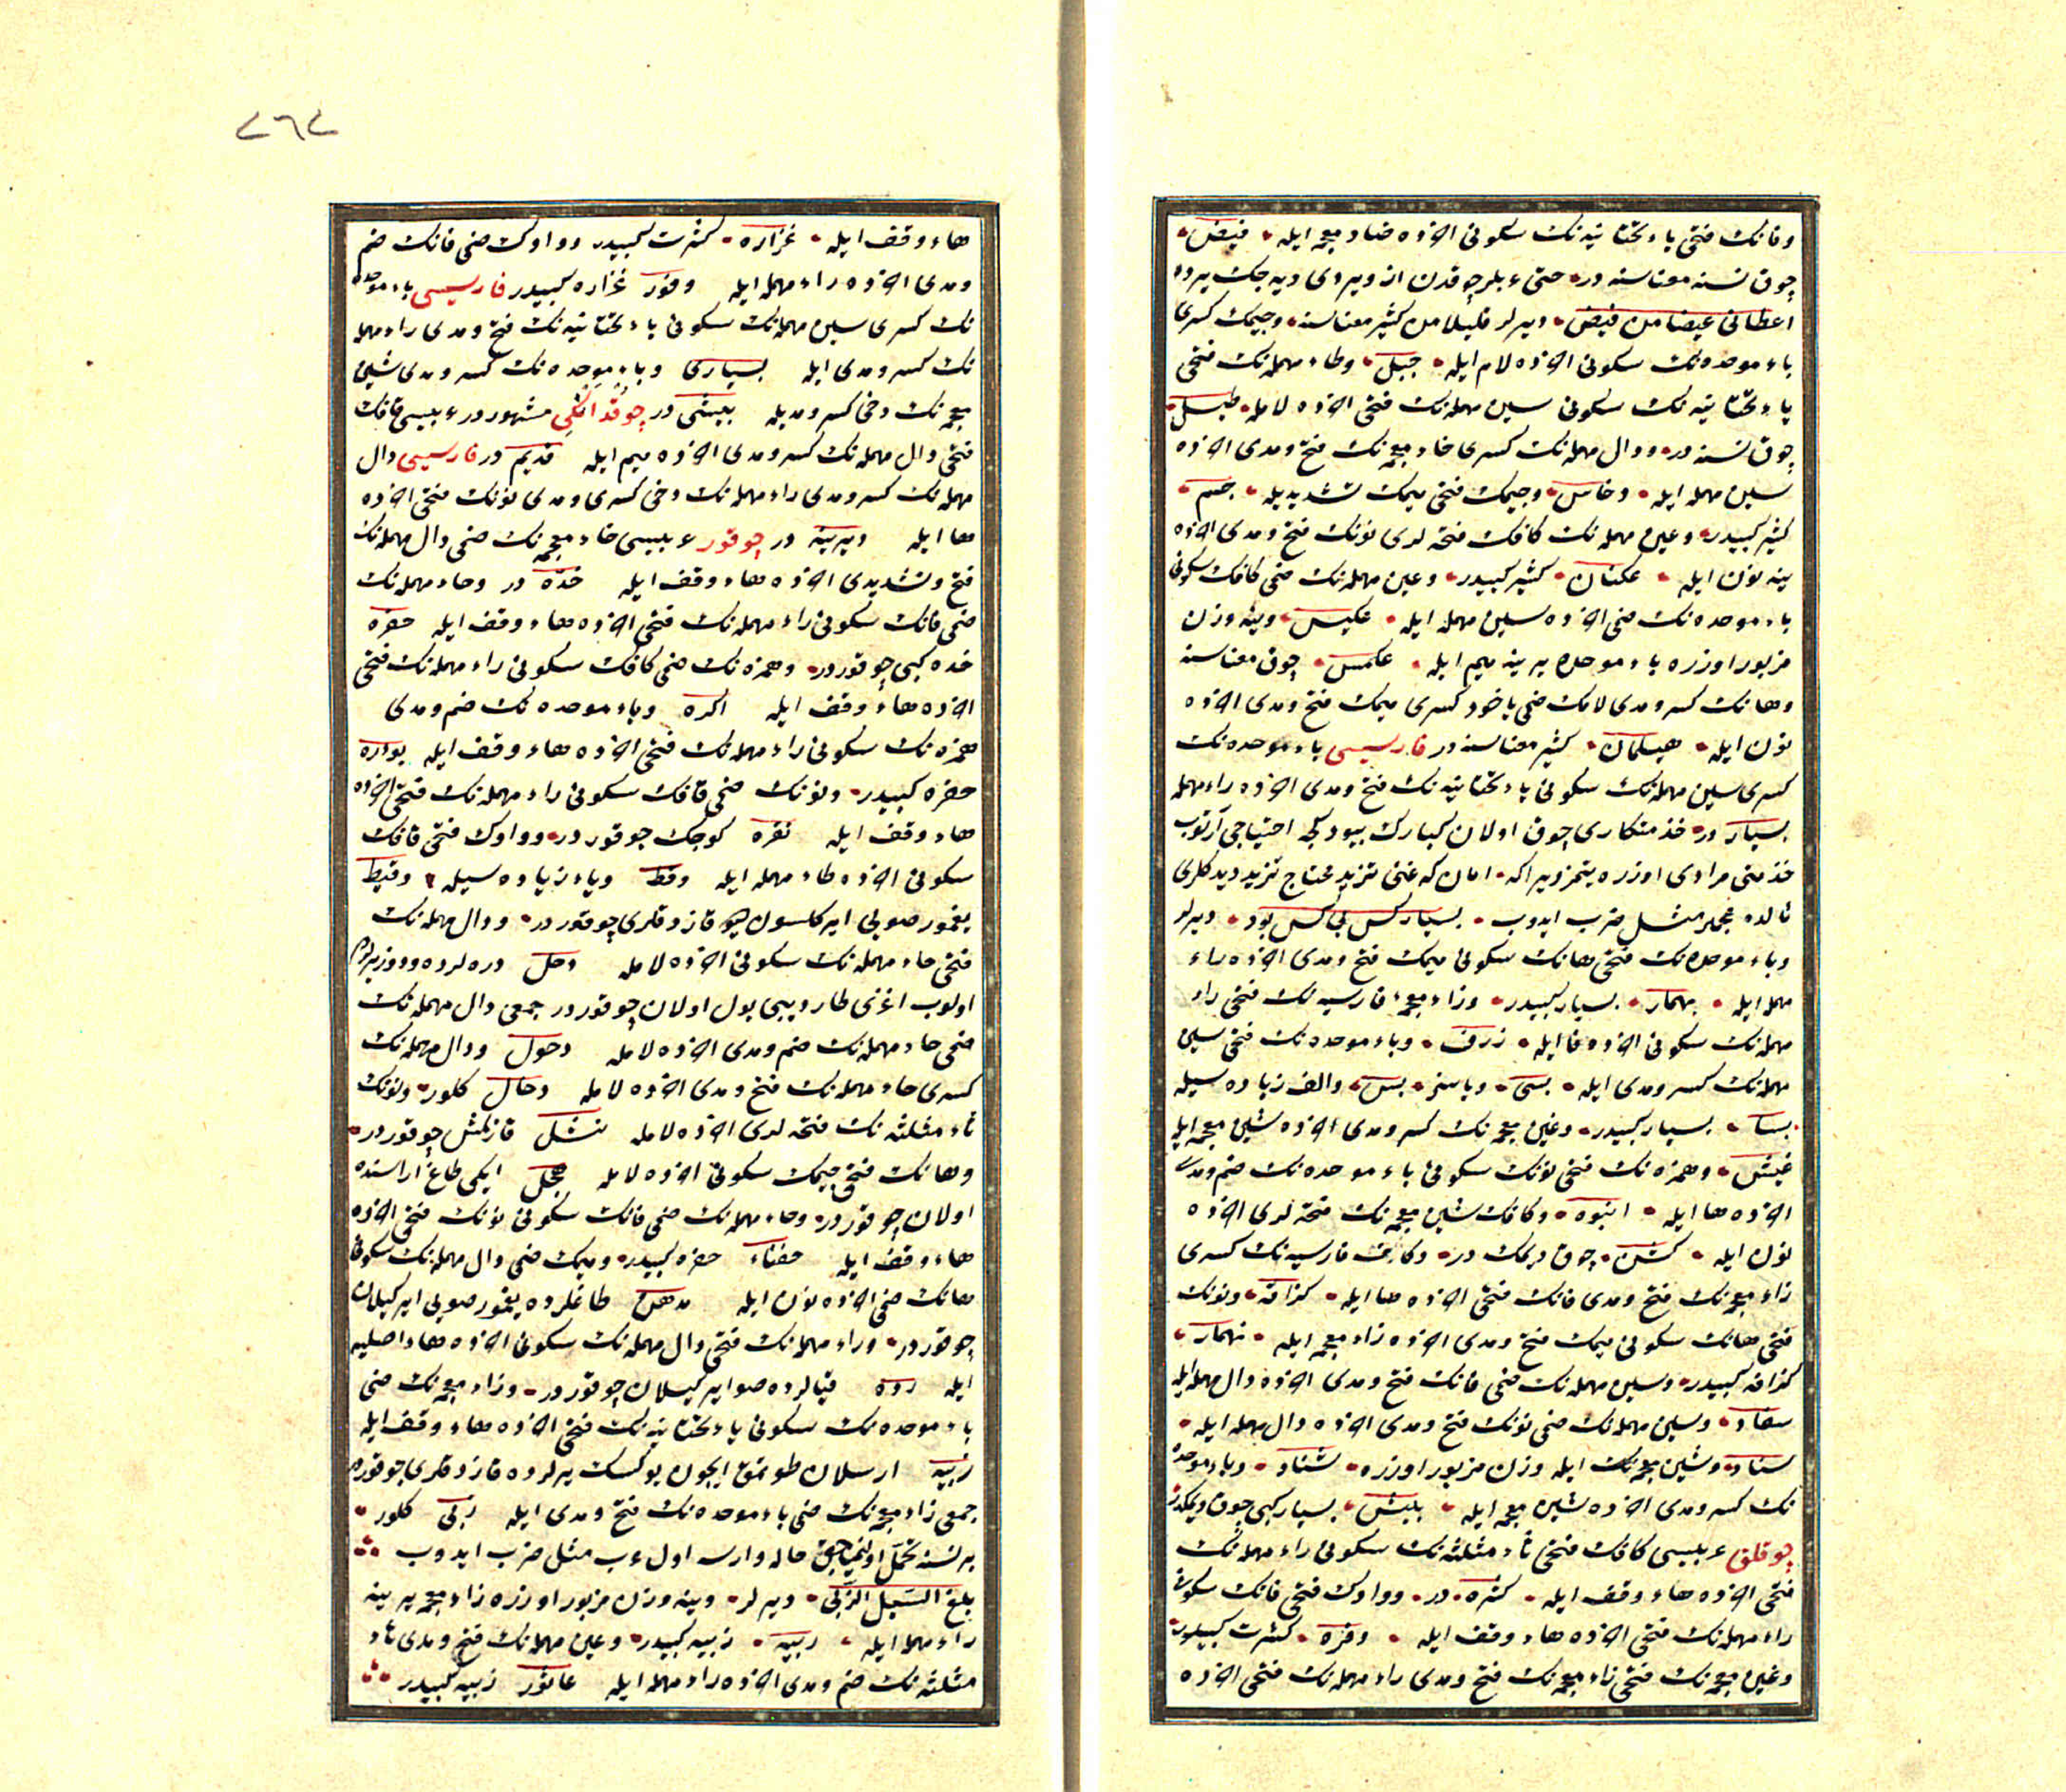 وفانك فتحى ياء تحتانيه نك سكونى آخرده ضاد معجمه ايله فيض
چوق نسنه معناسنه در حتى عربلر چوقدن از ويردى ديه جك يرده
اعطانى غيضا من فيض ديرلر قليلا من كثير معناسنه وجيمك كسرى
باء موحده نك سكونى آخرده لام ايله جبل وطاء مهمله نك فتحى
ياء تحتانيه نك سكونى سين مهمله نك فتحى آخرده لامله طيسل
چوق نسنه در ودال مهمله نك كسرى خاء معجمه نك فتح ومدى آخرده
سين مهمله ايله دخاس وجيمك فتحى ميمك تشديديله جم
كثير كبيدر وعين مهمله نك كافك فتحه لرى نونك فتح ومدى آخرده
ينه نون ايله عكنان كثير كبيدر وعين مهمله نك ضمى كافك سكونى
باء موحده نك ضمى آخرده سين مهمله ايله عكبس وينه وزن
مزبور اوزره باء موحده يرينه ميم ايله عكمس چوق معناسنه
وهانك كسر ومدى لامك ضمى ياخود كسرى ميمك فتح ومدى آخرده
نون ايله هيلمان كثير معناسنه در فارسيسى باء موحده نك
كسرى سين مهمله نك سكونى ياء تحتانيه نك فتح ومدى آخرده راء مهمله
بسيار در خذمتكارى چوق اولان كبارك بيودكجه احتياجى آرتوب
خذمتى مرادى اوزره يتمز ويراكه امان كه غنى تزيد محتاج تزيد ديدكلرى
قالده عجملر مثل ضرب ايدوب بسيار كس بى كس بود ديرلر
وباء موحده نك فتحى هانك سكونى ميمك فتح ومدى آخرده راء
مهمله ايله بهمار بسيار كبيدر وزاء معجمه فارسيه نك فتحى راء
مهمله نك سكونى آخرده فا ايله ژرف وباء موحده نك فتحى سين
مهمله نك كسر ومدى ايله بسى وياسز بس والف زياده سيله
بسا بسيار كبيدر وغين معجمه نك كسر ومدى آخرده شين معجمه ايله
غيش وهمزه نك فتحى نونك سكونى باء موحده نك ضم ومدى
آخرده ها ايله انبوه وكافك شين معجمه نك فتحه لرى آخرده
نون ايله كشن چوق ديمك در وكاف فارسيه نك كسرى
زاء معجمه نك فتح ومدى فانك فتحى آخرده ها ايله گزافه ونونك
فتحى هانك سكونى ميمك فتح ومدى آخرده راء معجمه ايله نهمار
گزافه كبيدر وسين مهمله نك ضمى فانك فتح ومدى آخرده دال مهمله ايله
سفاد وسين مهمله نك ضمى نونك فتح ومدى آخرده دال مهمله ايله
سناد وشين معجمه نك ايله وزن مزبور اوزره شناد وباء موحده
نك كسر ومدى آخرده شين معجمه ايله بيش بسيار كبى چوق ديمكدر
چوقلق عربيسى كافك فتحى ثاء مثلثه نك سكونى راء مهمله نك
فتحى آخرده هاء وقف ايله كثره در وواوك فتحى فانك سكونى
راء مهمله نك فتحى آخرده هاء وقف ايله وفره كثرت كبيدر
وغين معجمه نك فتحى زاء معجمه نك فتح ومدى راء مهمله نك فتحى آخرده
٢٦٢
هاء وقف ايله غزاره كثرت كبيدر وواوك ضمى فانك ضم
ومدى آخرده راء مهمله ايله وفور غزاره كبيدر فارسيسى باء موحده
نك كسرى سين مهمله نك سكونى ياء تحتانيه نك فتح ومدى راء مهمله
نك كسر ومدى ايله بسيارى وباء موحده نك كسر ومدى شين
معجمه نك دخى كسر ومديله بيشى در چوقدانكى مشهور در عربيسى قافك
فتحى دال مهمله نك كسر ومدى آخرده ميم ايله قديم در فارسيسى دال
مهمله نك كسر ومدى راء مهمله نك دخى كسرى ومدى نونك فتحى آخرده
ها ايله ديرينه در چوقور عربيسى خاء معجمه نك ضمى دال مهمله نك
فتح وتشديدى آخرده هاء وقف ايله خده در وحاء مهمله نك
ضمى فانك سكونى راء مهمله نك فتحى آخرده هاء وقف ايله حفره
خده كبى چوقور در وهمزه نك ضمى كافك سكونى راء مهمله نك فتحى
آخرده هاء وقف ايله اكره وباء موحده نك ضم ومدى
همزه نك سكونى راء مهمله نك فتحى آخرده هاء وقف ايله بوءره
حفره كبيدر ونونك ضمى قافك سكونى راء مهمله نك فتحى آخرده
هاء وقف ايله نقره كوچك چوقور در وواوك فتحى قافك
سكونى آخرده طاء مهمله ايله وقط وياء زياده سيله وقيط
يغمور صويى اير كلسون چوقازدقلرى چوقور در ودال مهمله نك
فتحى حاء مهمله نك سكونى آخرده لامله دحل دره لرده ودوز يرلرده
اولوب اغزى طار ديبى بول اولان چوقور در جمعى دال مهمله نك
ضمى حاء مهمله نك ضم ومدى آخرده لامله دحول ودال مهمله نك
كسرى حاء مهمله نك فتح ومدى آخرده لامله دحال كلور ونونك
ثاء مثلثه نك فتحه لرى آخرده لامله نثل قازلمش چوقور در
وهانك فتحى جيمك سكونى آخرده لامله هجل ايكى طاغ اراسنده
اولان چوقور در وحاء مهمله نك ضمى فانك سكونى نونك فتحى آخرده
هاء وقف ايله حفناء حفره كبيدر وميمك ضمى دال مهمله نك سكونى
هانك ضمى آخرده نون ايله مدهن طاغلرده يغمور صويى اير كيلان
چوقور در وراء مهمله نك فتحى دال مهمله نك سكونى آخرده هاء اصليه
ايله رده قيالرده صو اير كيلان چوقور در وزاء معجمه نك ضمى
باء موحده نك سكونى ياء تحتانيه نك فتحى آخرده هاء وقف ايله
زبيه ارسلان طوتمق ايچون يوكسك يرلرده قازدقلرى چوقور در
جمعى زاء معجمه نك ضمى باء موحده نك فتح ومدى ايله زبى كلور
بر نسنه تحمل اولنمياجق حاله وارسه اول عرب مثل ضرب ايدوب
بلغ السيل الزبى ديرلر وينه وزن مزبور اوزره زاء معجمه يرينه
راء مهمله ايله ربيه زبيه كبيدر وعين مهمله نك فتح ومدى ثاء
مثلثه نك ضم ومدى آخرده راء مهمله ايله عاثور زبيه كبيدر